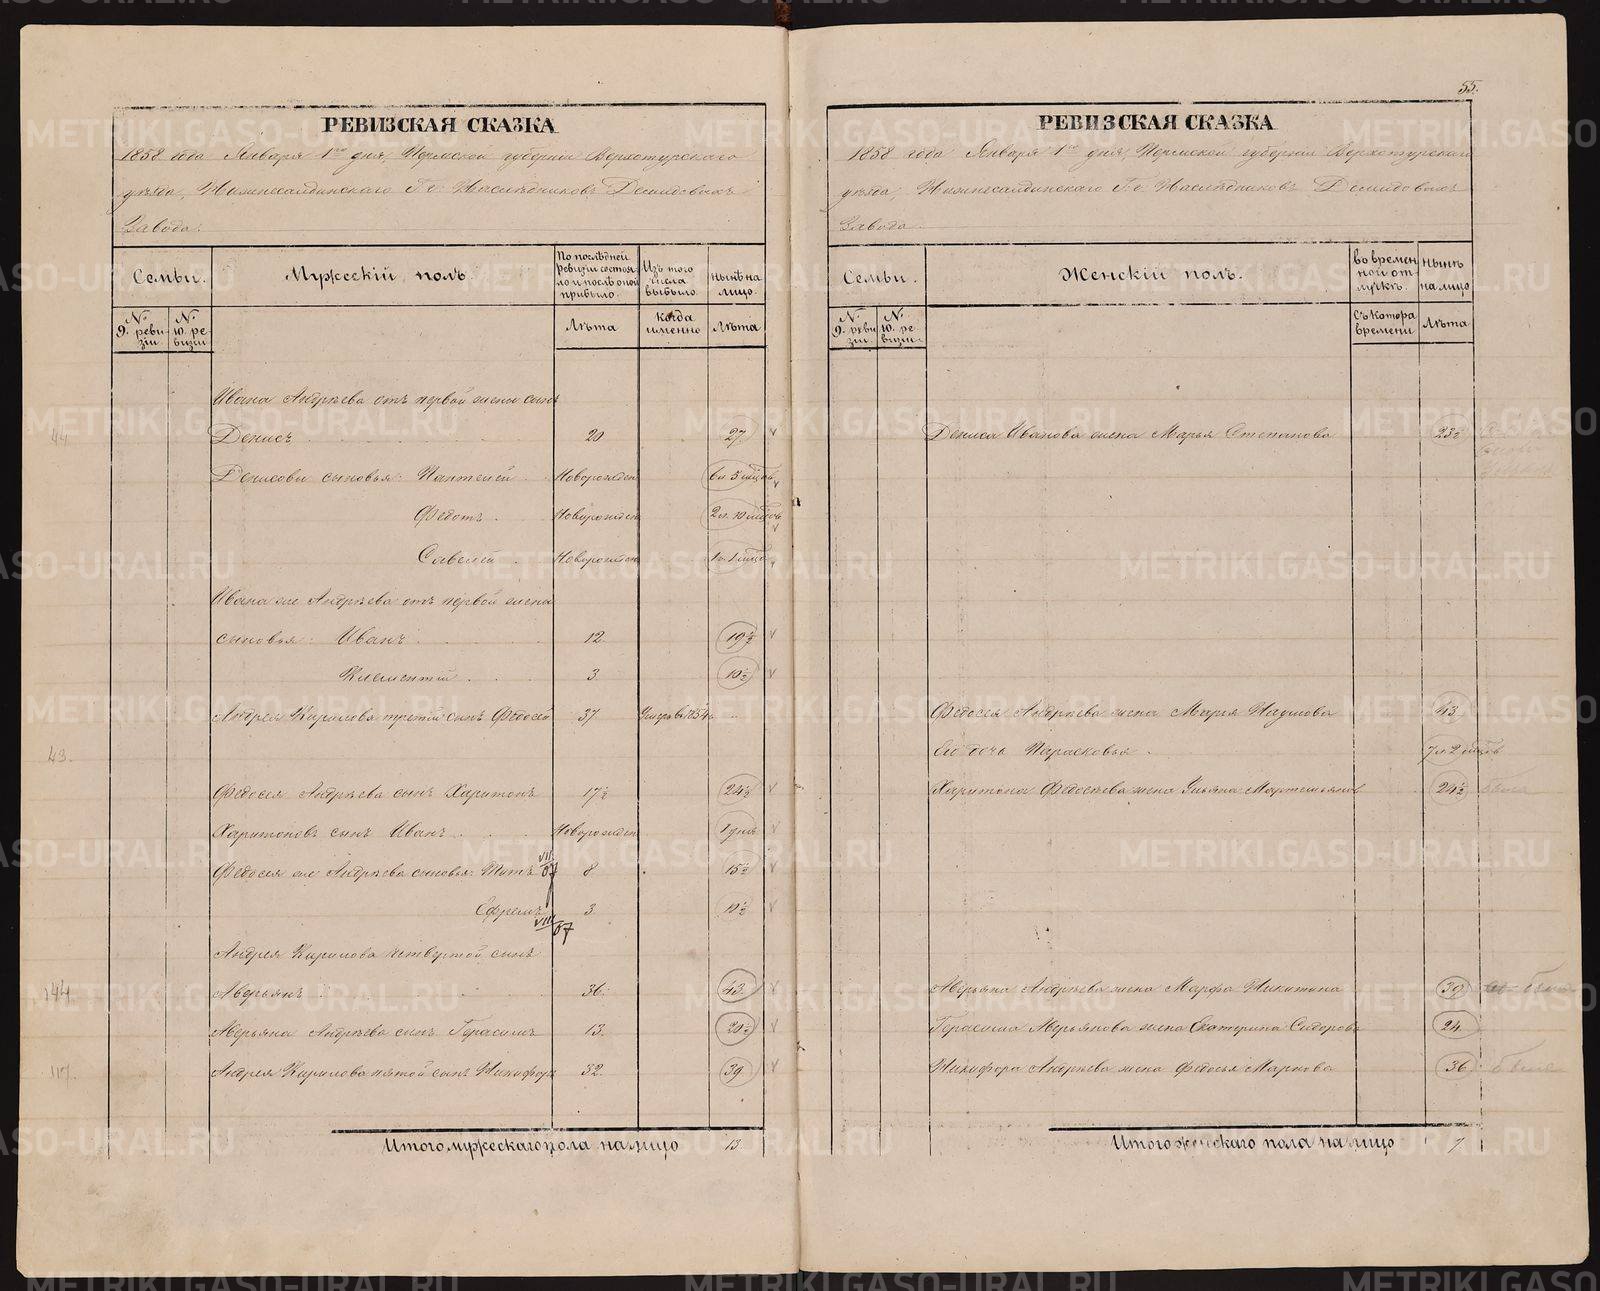 55.
РЕВИЗСКАЯ СКАЗКА
1858 года Января 1го дня, Пермской губерніи Верхотурскаго
уѣзда, Нижнесалдинскаго Г.г. Наслѣдниковъ Демидовыхъ
Завода.
Семьи.
Мужескій полъ.
По послѣдней ревизіи состояло и послѣ оной прибыло.
Изъ того числа выбыло.
нынѣ на лицо.
№ 9. ревизіи
№ 10. ревизіи
Лѣта
когда именно
Лѣта
Ивана Андрѣева отъ первой жены сынъ
44
Денисъ 20 27
Денисовы сыновья: Пантелей Новорожден 6 л 5 мѣсцовъ
Федотъ Новорожден 2 л. 10 мѣсцовъ
Савелий Новорожден 1 г. 1 мѣсц
Ивана же Андрѣева отъ первой жены
сыновья: Иванъ 12 19½
Климентій 3 10½
Андрея Кирилова третій сынъ Федосей 37 Умеръ въ 1854
43.
Федосея Андрѣева сынъ Харитонъ 17½ 24½
Харитоновъ сынъ Иванъ Новорожден 1 день
Федосея же Андрѣева сыновья: Титъ VII/07 8 15½
Ефремъ VIII/07 3 10½
Андрея Кирилова четвертой сынъ
144
Аверьянъ 36. 43
Аверьяна Андрѣева сынъ Герасимъ 13. 20½
117.
Андрея Кирилова пятой сынъ Никифоръ 32 39
Итого мужескаго пола на лицо 13
РЕВИЗСКАЯ СКАЗКА
1858 года Января 1го дня, Пермской губерніи Верхотурскаго
уѣзда, Нижнесалдинскаго Г.г. Наслѣдниковъ Демидовыхъ
Завода.
Семьи.
Женскій полъ.
во временной отлучкѣ.
нынѣ на лицо
№ 9. ревизіи
№ 10. ревизіи.
Съ котора времени
Лѣта
Дениса Иванова жена Марья Степанова 23½
Федосея Андрѣева жена Марья Наумова 43
Его дочь Парасковья 7 л 2 мѣсцовъ
Харитона Федосѣева жена Ульяна Мартемьянов 24½
Аверьяна Андрѣева жена Марфа Никитина 39
Герасима Аверьянова жена Екатерина Сидорова 24
Никифора Андрѣева жена Федосья Маркова 36
Итого женскаго пола на лицо 7
METRIKI.GASO-URAL.RU